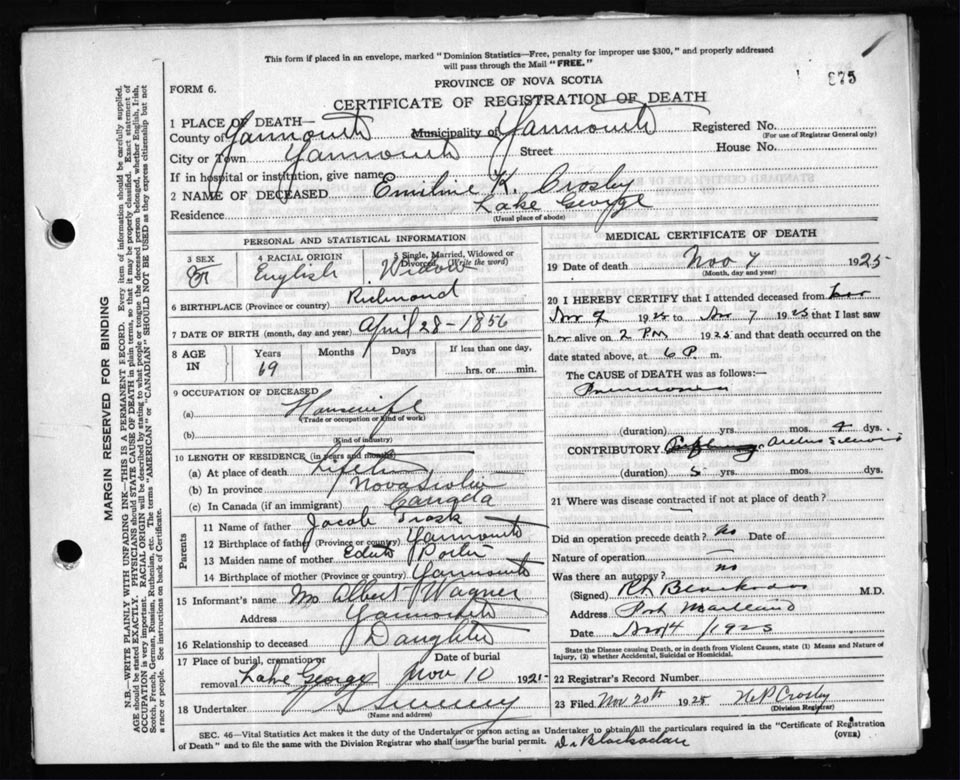 This form if placed in an envelope, marked "Dominion Statistics—Free, penalty for improper use $300," and properly addressed
will pass through the Mail "FREE."
875
PROVINCE OF NOVA SCOTIA
FORM 6.
CERTIFICATE OF REGISTRATION OF DEATH
MARGIN RESERVED FOR BINDING
N.B.—WRITE PLAINLY WITH UNFADING INK—THIS IS A PERMANENT RECORD. Every item of information should be carefully supplied.
AGE should be stated EXACTLY. PHYSICIANS should STATE CAUSE OF DEATH in plain terms, so that it may be properly classified. Exact statement of
OCCUPATION is very important. RACIAL ORIGIN will be described by stating to what people or tongue the deceased person belonged, whether English, Irish,
Scotch, French, German, Russian, Ruthenian, etc. The terms "AMERICAN" or "CANADIAN" SHOULD NOT BE USED as they express citizenship but not
a race or people. See instructions on back of Certificate.
1 PLACE OF DEATH—
County of Yarmouth Municipality of Yarmouth Registered No.
(For use of Registrar General only)
City or Town Yarmouth Street House No.
If in hospital or institution, give name
2 NAME OF DECEASED Emiline K. Crosby
Residence Lake George
(Usual place of abode)
PERSONAL AND STATISTICAL INFORMATION
3 SEX
4 RACIAL ORIGIN English
5 Single, Married, Widowed or Divorced (Write the word) Widow
6 BIRTHPLACE (Province or country) Richmond
7 DATE OF BIRTH (month, day and year) April 28-1856
8 AGE IN Years 69 Months Days If less than one day, hrs. or min.
9 OCCUPATION OF DECEASED
(a) Housewife
(Trade or occupation or kind of work)
(b)
(Kind of industry)
10 LENGTH OF RESIDENCE (in years and months)
(a) At place of death Lifetime
(b) In province Nova Scotia
(c) In Canada (if an immigrant) Canada
Parents
11 Name of father Jacob Trask
12 Birthplace of father (Province or country) Yarmouth
13 Maiden name of mother Porter
14 Birthplace of mother (Province or country) Yarmouth
15 Informant's name Mrs Albert Wagner
Address Yarmouth
16 Relationship to deceased Daughter
17 Place of burial, cremation or removal Lake George Date of burial Nov 10 192
18 Undertaker Sweeny
(Name and address)
MEDICAL CERTIFICATE OF DEATH
19 Date of death Nov 7 1925
(Month, day and year)
20 I HEREBY CERTIFY that I attended deceased from
192 to Nov 7 1925 that I last saw
her alive on 2 PM 1925 and that death occurred on the
date stated above, at 6 P. m.
The CAUSE of DEATH was as follows:—
Pneumonia
(duration) yrs. mos. 4 dys.
CONTRIBUTORY
(duration) 5 yrs. mos. dys.
21 Where was disease contracted if not at place of death?
Did an operation precede death? No Date of
Nature of operation
Was there an autopsy? no
(Signed) M.D.
Address Port Maitland
Date Nov 14 1925
State the Disease causing Death, or in death from Violent Causes, state (1) Means and Nature of
Injury, (2) whether Accidental, Suicidal or Homicidal.
22 Registrar's Record Number
23 Filed Nov 20th 1925 Crosby
(Division Registrar)
SEC. 46—Vital Statistics Act makes it the duty of the Undertaker or person acting as Undertaker to obtain all the particulars required in the "Certificate of Registration
of Death" and to file the same with the Division Registrar who shall issue the burial permit. Dr Blackadar
(OVER)